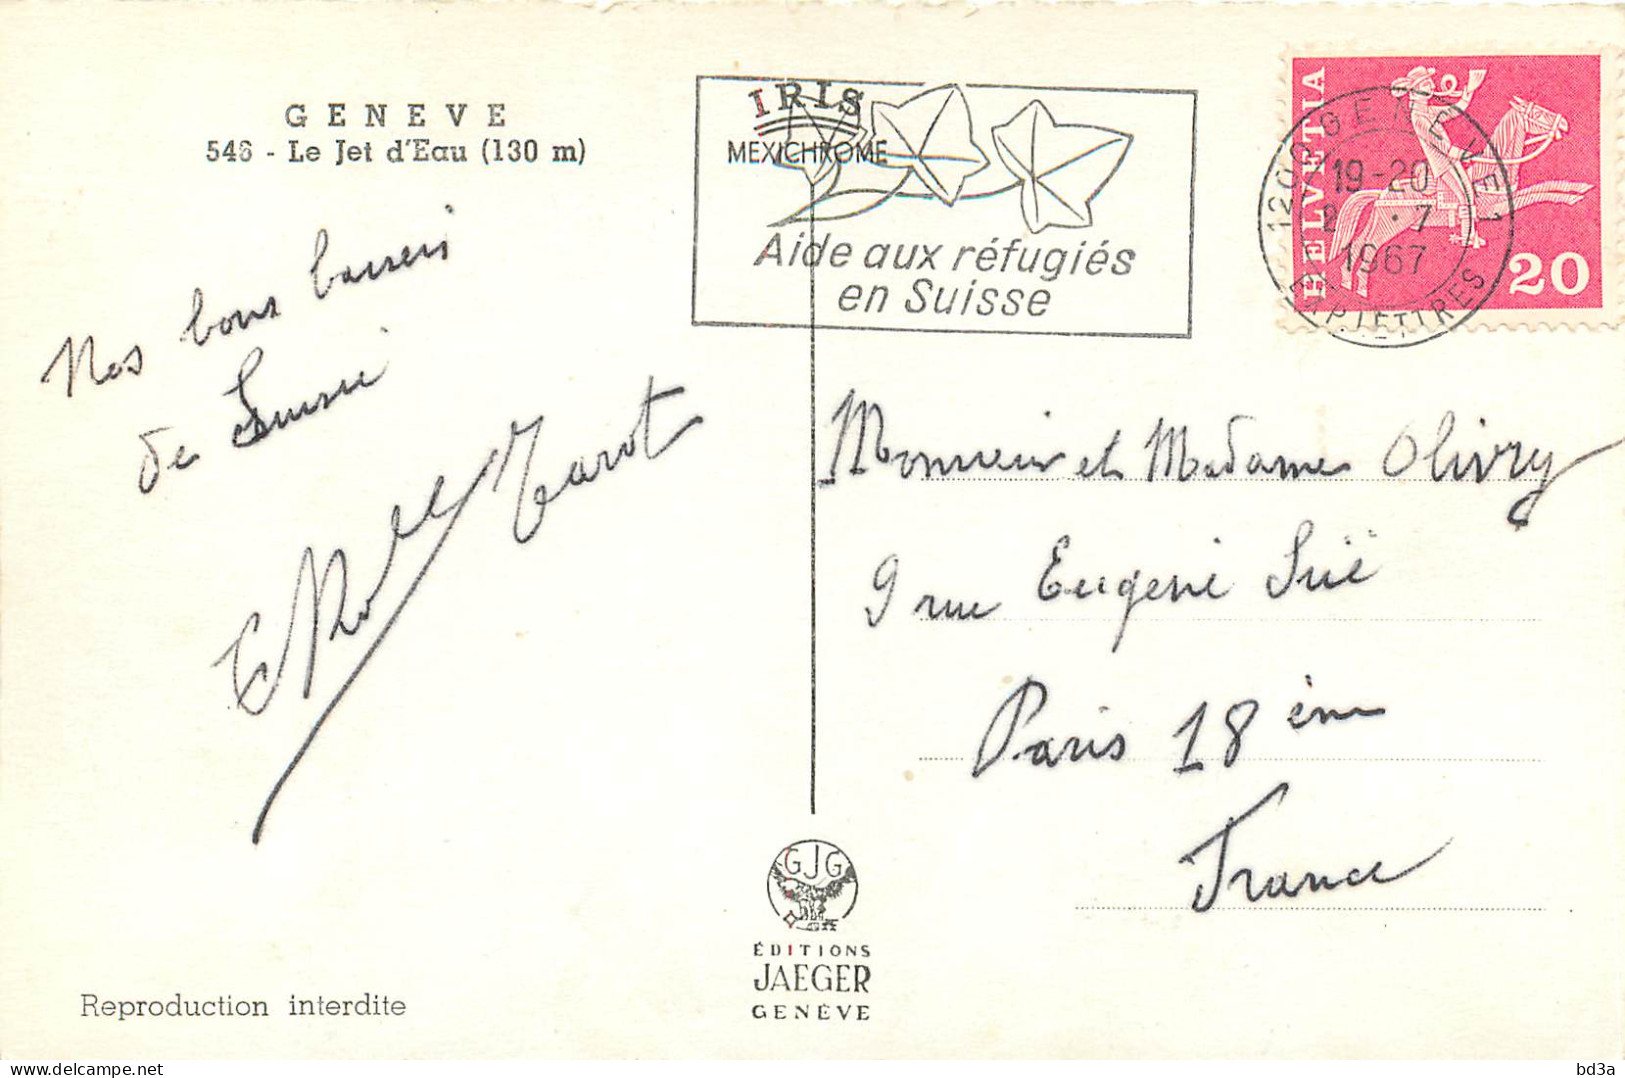 GENEVE
546 - Le Jet d'Eau (130 m)
IRIS
MEXICHROME
Aide aux réfugiés
en Suisse
HELVETIA
20
1200 GENÈVE 1
19-20
2 . 7
1967
EXP. LETTRES
Nos bons baisers
de Suisse
Tarot
Monsieur et Madame Olivry
9 rue Eugene Suë
Paris 18 ème
France
GJG
ÉDITIONS
JAEGER
GENÈVE
Reproduction interdite
delcampe.net
bd3a